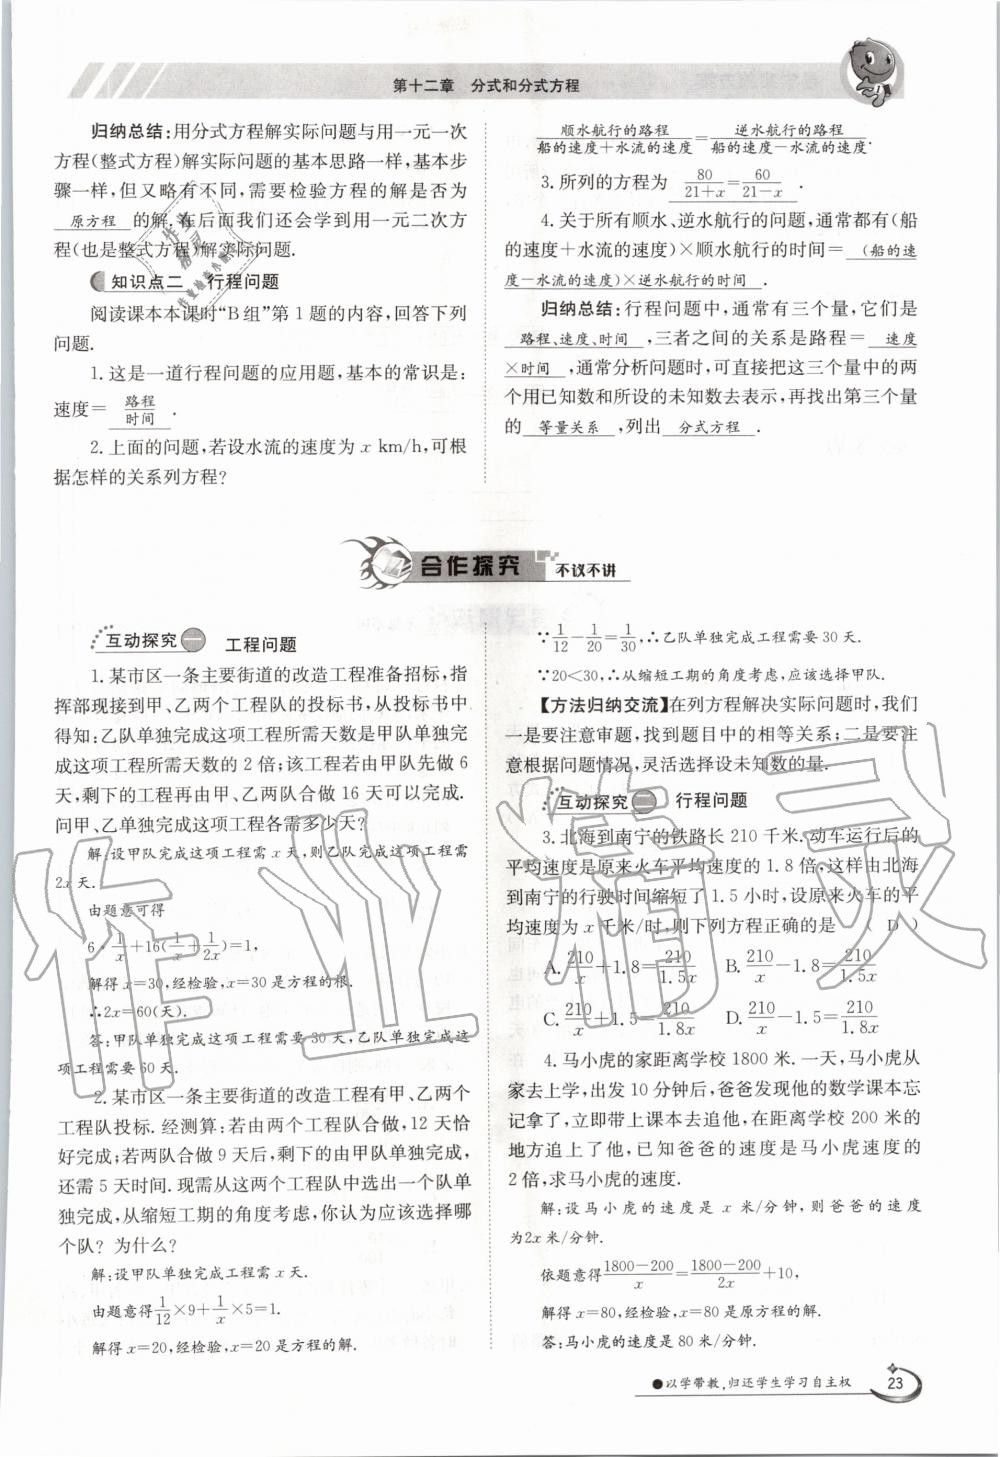 第十二章 分式和分式方程
归纳总结:用分式方程解实际问题与用一元一次
方程(整式方程)解实际问题的基本思路一样,基本步
骤一样,但又略有不同,需要检验方程的解是否为
原方程 的解.在后面我们还会学到用一元二次方
程(也是整式方程)解实际问题.
知识点二 行程问题
阅读课本本课时“B组”第1题的内容,回答下列
问题.
1. 这是一道行程问题的应用题,基本的常识是:
速度=路程/时间.
2. 上面的问题,若设水流的速度为 x km/h,可根
据怎样的关系列方程?
顺水航行的路程/船的速度+水流的速度=逆水航行的路程/船的速度-水流的速度.
3. 所列的方程为 80/21+x=60/21-x.
4. 关于所有顺水、逆水航行的问题,通常都有(船
的速度+水流的速度)×顺水航行的时间=(船的速
度-水流的速度)×逆水航行的时间.
归纳总结:行程问题中,通常有三个量,它们是
路程、速度、时间,三者之间的关系是路程=速度
×时间,通常分析问题时,可直接把这三个量中的两
个用已知数和所设的未知数去表示,再找出第三个量
的 等量关系,列出 分式方程.
合作探究 不议不讲
互动探究一 工程问题
1. 某市区一条主要街道的改造工程准备招标,指
挥部现接到甲、乙两个工程队的投标书,从投标书中
得知:乙队单独完成这项工程所需天数是甲队单独完
成这项工程所需天数的2倍;该工程若由甲队先做6
天,剩下的工程再由甲、乙两队合做16天可以完成.
问甲、乙单独完成这项工程各需多少天?
解:设甲队完成这项工程需x天,则乙队完成这项工程需
2x天.
由题意可得
6·1/x+16(1/x+1/2x)=1,
解得x=30,经检验,x=30是方程的根.
∴2x=60(天).
答:甲队单独完成这项工程需要30天,乙队单独完成这
项工程需要60天.
2. 某市区一条主要街道的改造工程有甲、乙两个
工程队投标. 经测算:若由两个工程队合做,12天恰
好完成;若两个队合做9天后,剩下的由甲队单独完成,
还需5天时间. 现需从这两个工程队中选出一个队单
独完成,从缩短工期的角度考虑,你认为应该选择哪
个队? 为什么?
解:设甲队单独完成工程需x天.
由题意得1/12×9+1/x×5=1.
解得x=20,经检验,x=20是方程的解.
∵1/12-1/20=1/30,∴乙队单独完成工程需要30天.
∵20<30,∴从缩短工期的角度考虑,应该选择甲队.
【方法归纳交流】在列方程解决实际问题时,我们
一是要注意审题,找到题目中的相等关系;二是要注
意根据问题情况,灵活选择设未知数的量.
互动探究二 行程问题
3. 北海到南宁的铁路长210千米.动车运行后的
平均速度是原来火车平均速度的1.8倍,这样由北海
到南宁的行驶时间缩短了1.5小时,设原来火车的平
均速度为x千米/时,则下列方程正确的是 ( D )
A. 210/x+1.8=210/1.5x B. 210/x-1.8=210/1.5x
C. 210/x+1.5=210/1.8x D. 210/x-1.5=210/1.8x
4. 马小虎的家距离学校1800米. 一天,马小虎从
家去上学,出发10分钟后,爸爸发现他的数学课本忘
记拿了,立即带上课本去追他,在距离学校200米的
地方追上了他,已知爸爸的速度是马小虎速度的
2倍,求马小虎的速度.
解:设马小虎的速度是x米/分钟,则爸爸的速度
为2x米/分钟.
依题意得1800-200/x=1800-200/2x+10,
解得x=80,经检验,x=80是原方程的解.
答:马小虎的速度是80米/分钟.
●以学带教,归还学生学习自主权
23
作业精灵